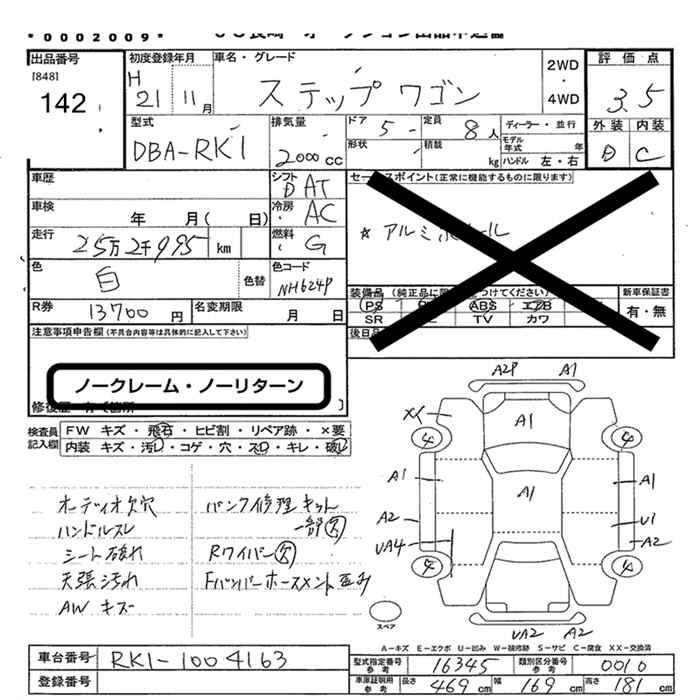 *0002009*
出品番号 [848] 142
初度登録年月 H 21 11月
車名・グレード ステップワゴン
2WD・4WD
評価点 3.5
外装 内装 C
型式 DBA-RK1
排気量 2000cc
ドア 5 定員 8人
形状 積載 kg
ディーラー・並行
モデル年式 年
ハンドル 左・右
車歴
シフト AT
車検 年 月( 日)
冷房 AC
走行 25万2千995 km
燃料 G
色 白 色替
色コード NH624P
R券 13700円
名変期限 月 日
セールスポイント(正常に機能するものに限ります)
☆ アルミホイール
装備品
PS ABS エアB
SR TV カワ
新車保証書 有・無
注意事項申告欄(不具合内容等は具体的に記入して下さい)
ノークレーム・ノーリターン
検査員記入欄
FW キズ・飛石・ヒビ割・リペア跡・×要
内装 キズ・汚れ・コゲ・穴・スレ・キレ・破れ
オーディオ欠穴
ハンドルスレ
シート破れ
天張汚れ
AW キズ
パンク修理キット
一部欠
Rワイパー欠
A2P A1
A1
4 4
A1 A1 A1
A2 U1
UA4 A2
4 4
スペア
UA2 A2
A-キズ E-エクボ U-凹み W-補修跡 S-サビ C-腐食 XX-交換済
車台番号 RK1-1004163
登録番号
型式指定番号 参考 16345 類別区分番号 参考 0010
車庫証明用 参考 長さ 469cm 幅 169cm 高さ 181cm